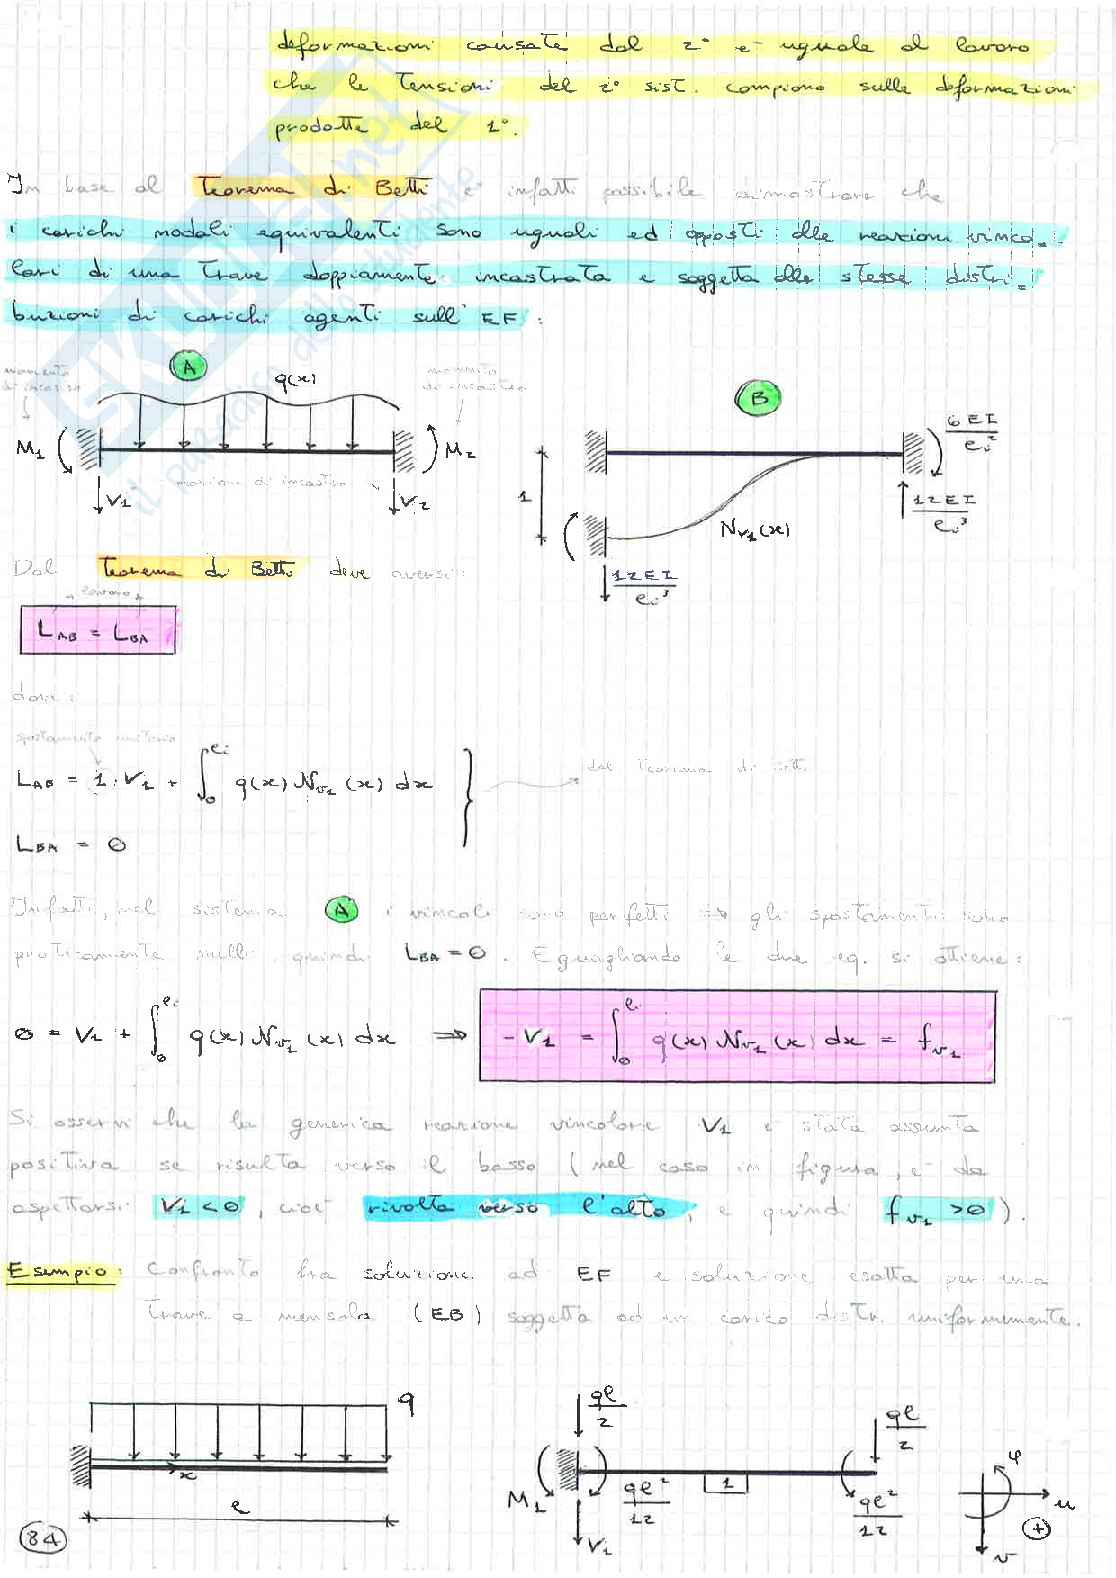 deformazioni causate dal 2° è uguale al lavoro
che le tensioni del 2° sist. compiono sulle deformazioni
prodotte del 1°.
In base al teorema di Betti è infatti possibile dimostrare che
i carichi nodali equivalenti sono uguali ed opposti alle reazioni vinco=
lari di una trave doppiamente incastrata e soggetta alle stesse distri=
buzioni di carichi agenti sull'EF:
A
momento di incastro
q(x)
momento di incastro
M1
M2
V1
reazione di incastro
V2
B
6EI/ei²
1
Nv1(x)
12EI/ei³
12EI/ei³
Dal teorema di Betti deve aversi:
lavoro
LAB = LBA
dove:
spostamento unitario
LAB = 1·V1 + ∫0^ei q(x) Nv1(x) dx
dal Teorema di Betti
LBA = 0
Infatti, nel sistema A i vincoli sono perfetti ⇒ gli spostamenti sono
praticamente nulli, quindi LBA=0. Eguagliando le due eq. si ottiene:
0 = V1 + ∫0^ei q(x) Nv1(x) dx ⇒ -V1 = ∫0^ei q(x) Nv1(x) dx = fv1
Si osservi che la generica reazione vincolare V1 è stata assunta
positiva se risulta verso il basso (nel caso in figura, è da
aspettarsi V1<0, cioè rivolta verso l'alto, e quindi fv1>0).
Esempio: Confronto fra soluzione ad EF e soluzione esatta per una
trave a mensola (EB) soggetta ad un carico distr. uniformemente.
q
x
e
qe/2
qe/2
M1
qe²/12
1
qe²/12
V1
φ
u
+
v
84